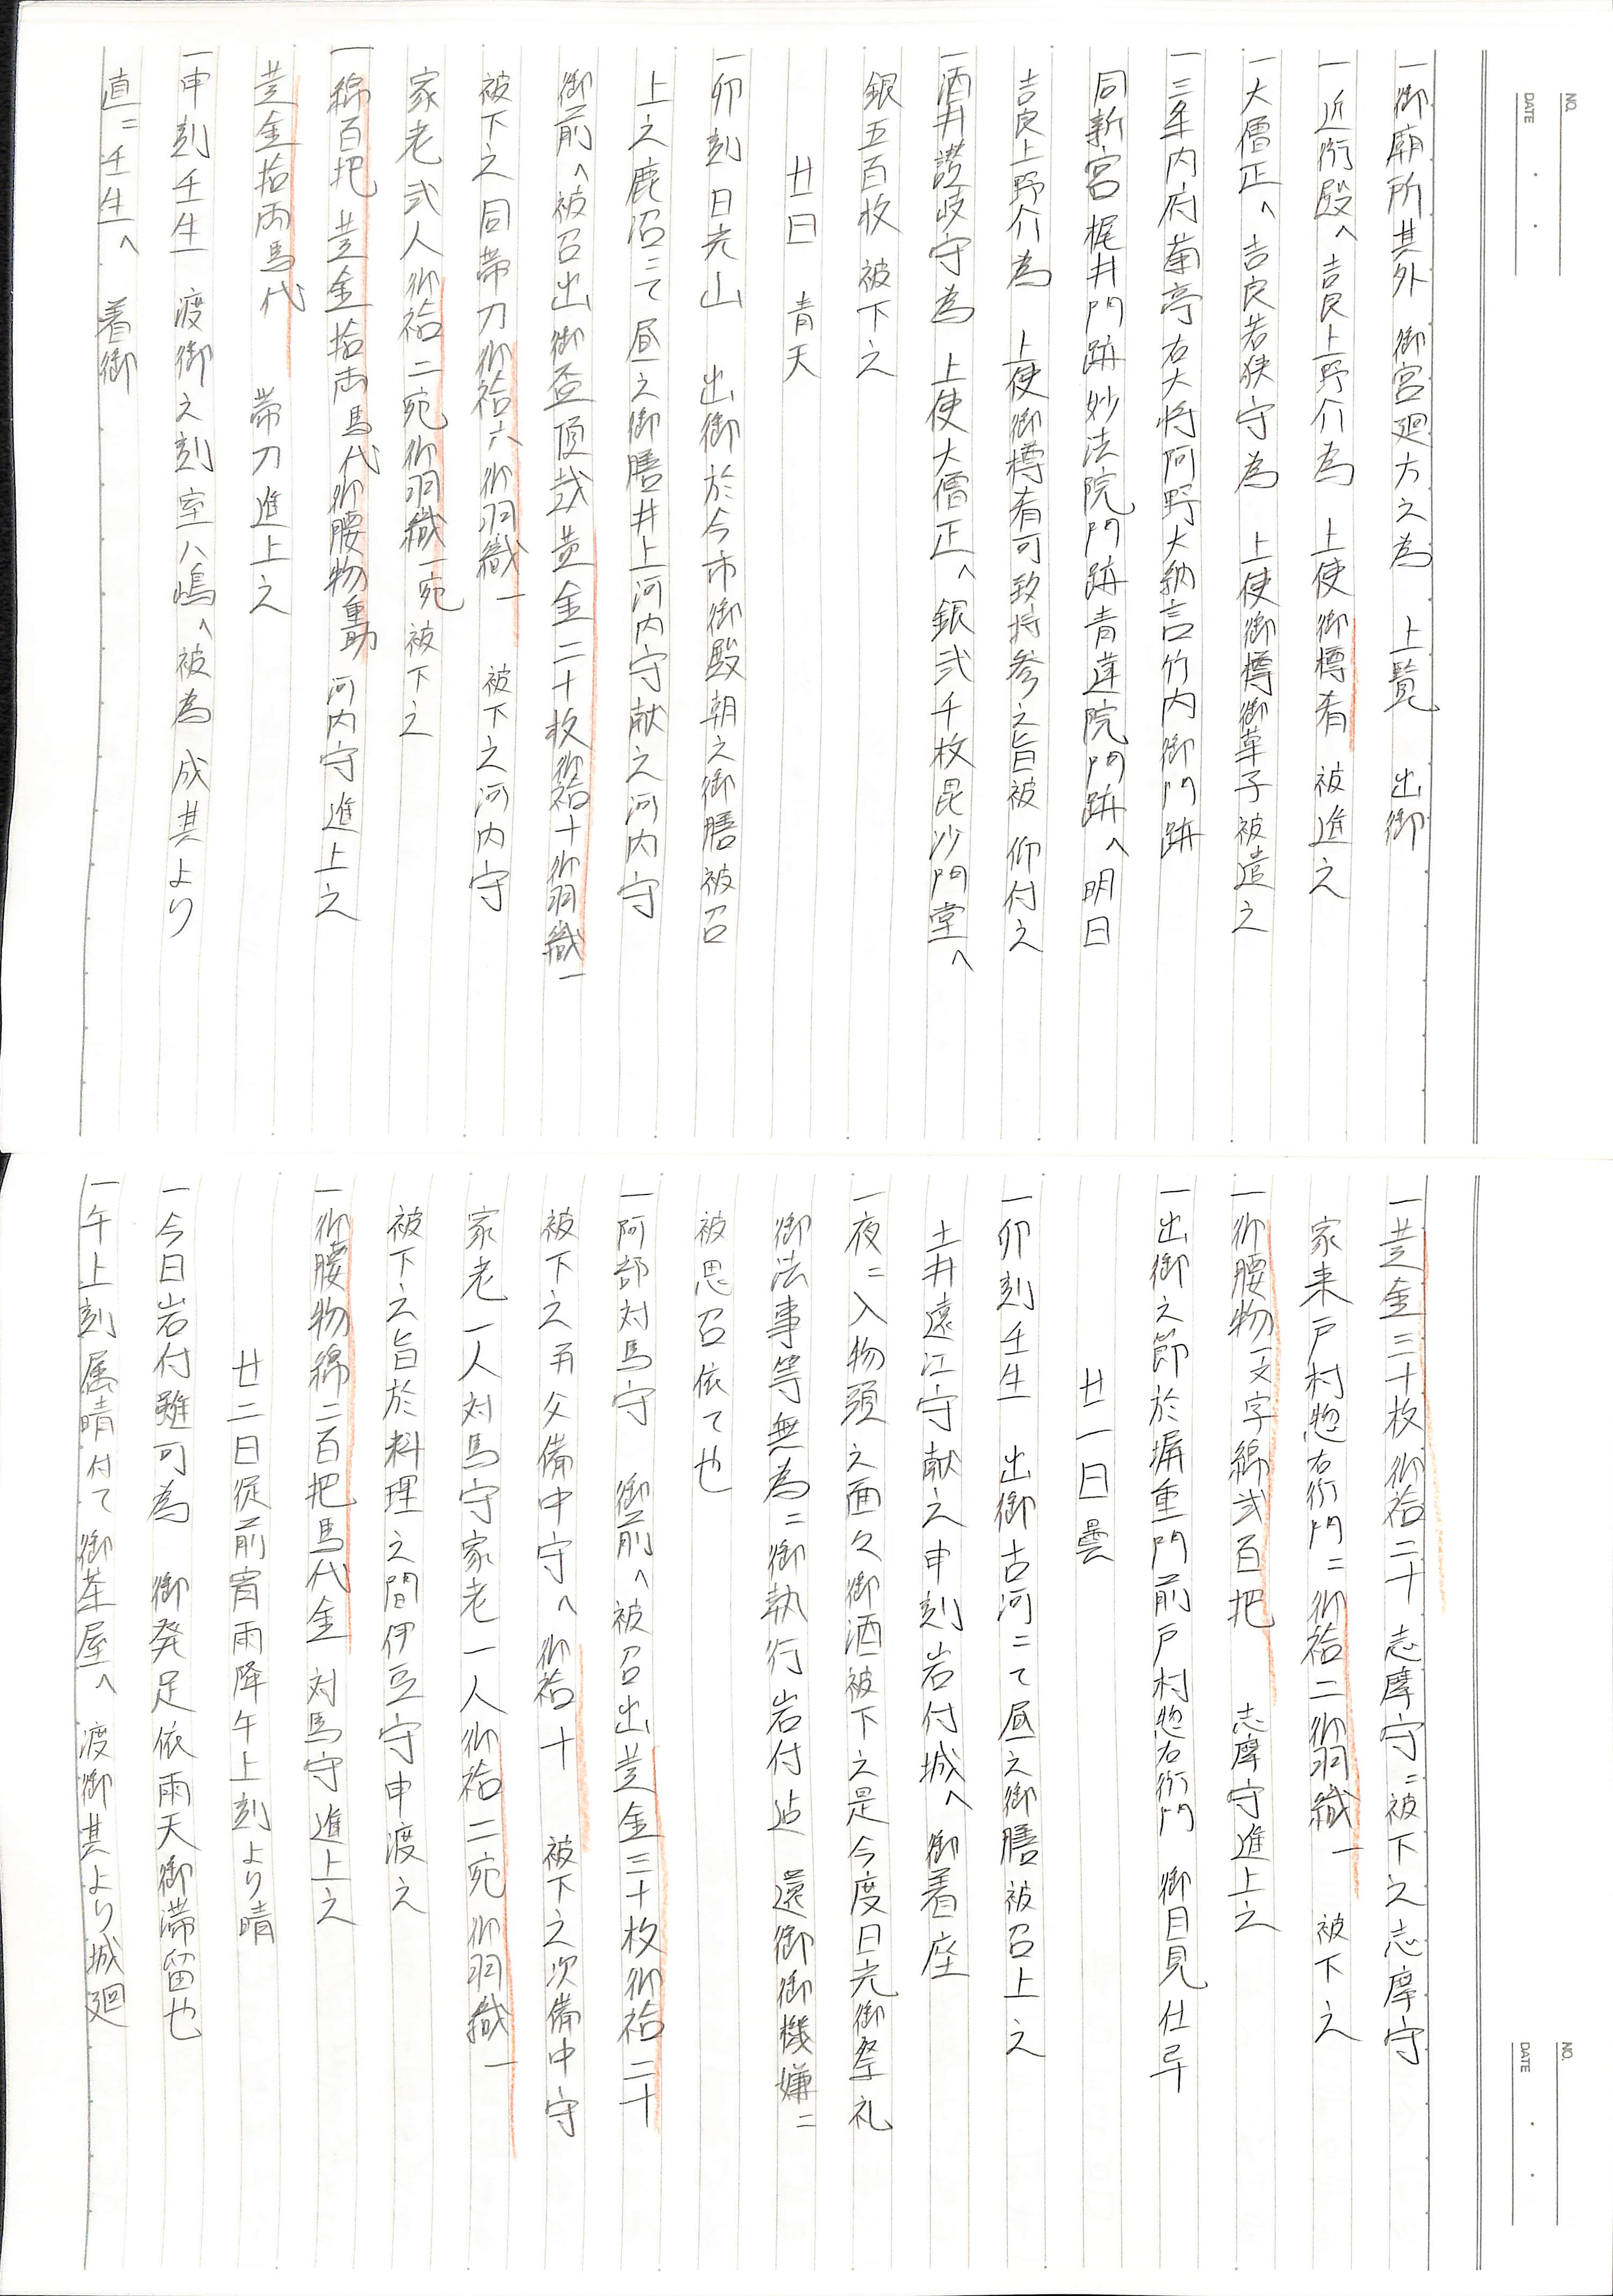 NO.
DATE
一御廟所其外 御宮廻方之為 上覧 出御
一近衛殿へ吉良上野介為 上使御樽肴 被進之
一大僧正へ吉良若狭守為 上使御樽御菓子被遣之
一三条内府菊亭右大将阿野大納言竹内御門跡
同新宮梶井門跡妙法院門跡青蓮院門跡へ明日
吉良上野介為 上使御樽肴可致持参之旨被 仰付之
一酒井讃岐守為 上使大僧正へ銀弐千枚毘沙門堂へ
銀五百枚 被下之
廿日 青天
一卯刻日光山 出御於今市御殿朝之御膳被召
上之鹿沼ニて昼之御膳井上河内守献之河内守
御前へ被召出御盃頂戴黄金二十枚御袷十御羽織一
被下之同帯刀御袷六御羽織一 被下之河内守
家老弐人御袷二宛御羽織一宛被下之
一綿百把黄金拾両馬代御腰物 河内守進上之
黄金拾両馬代 帯刀進上之
一申刻壬生 渡御之刻室八嶋へ被為 成其より
直ニ壬生へ 着御
NO.
DATE
一黄金三十枚御袷二十志摩守ニ被下之志摩守
家来戸村惣右衛門ニ御袷二御羽織一 被下之
一御腰物一文字綿弐百把 志摩守進上之
一出御之節於塀重門前戸村惣右衛門 御目見仕畢
廿一日曇
一卯刻壬生 出御古河ニて昼之御膳被召上之
土井遠江守献之申刻岩付城へ 御着座
一夜ニ入物頭之面々御酒被下之是今度日光御祭礼
御法事等無為ニ御執行岩付迠 還御御機嫌ニ
被思召依て也
一阿部対馬守 御前へ被召出黄金三十枚御袷二十
被下之 父備中守へ御袷十 被下之次備中守
家老一人対馬守家老一人御袷二宛御羽織一
被下之旨於料理之間伊豆守申渡之
一御腰物綿二百把馬代金 対馬守進上之
廿二日従前宵雨降午上刻より晴
一今日岩付雖可為 御発足依雨天御滞留也
一午上刻属晴付て御茶屋へ 渡御其より城廻